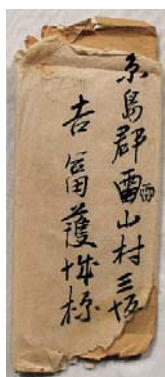 糸島郡雷山村三坂
吉富護様